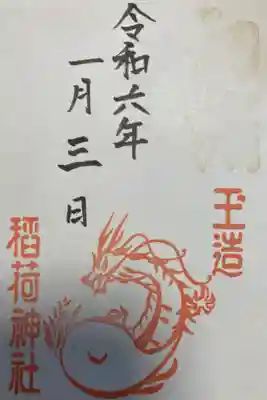 玉造
稲荷神社
令和六年
一月三日